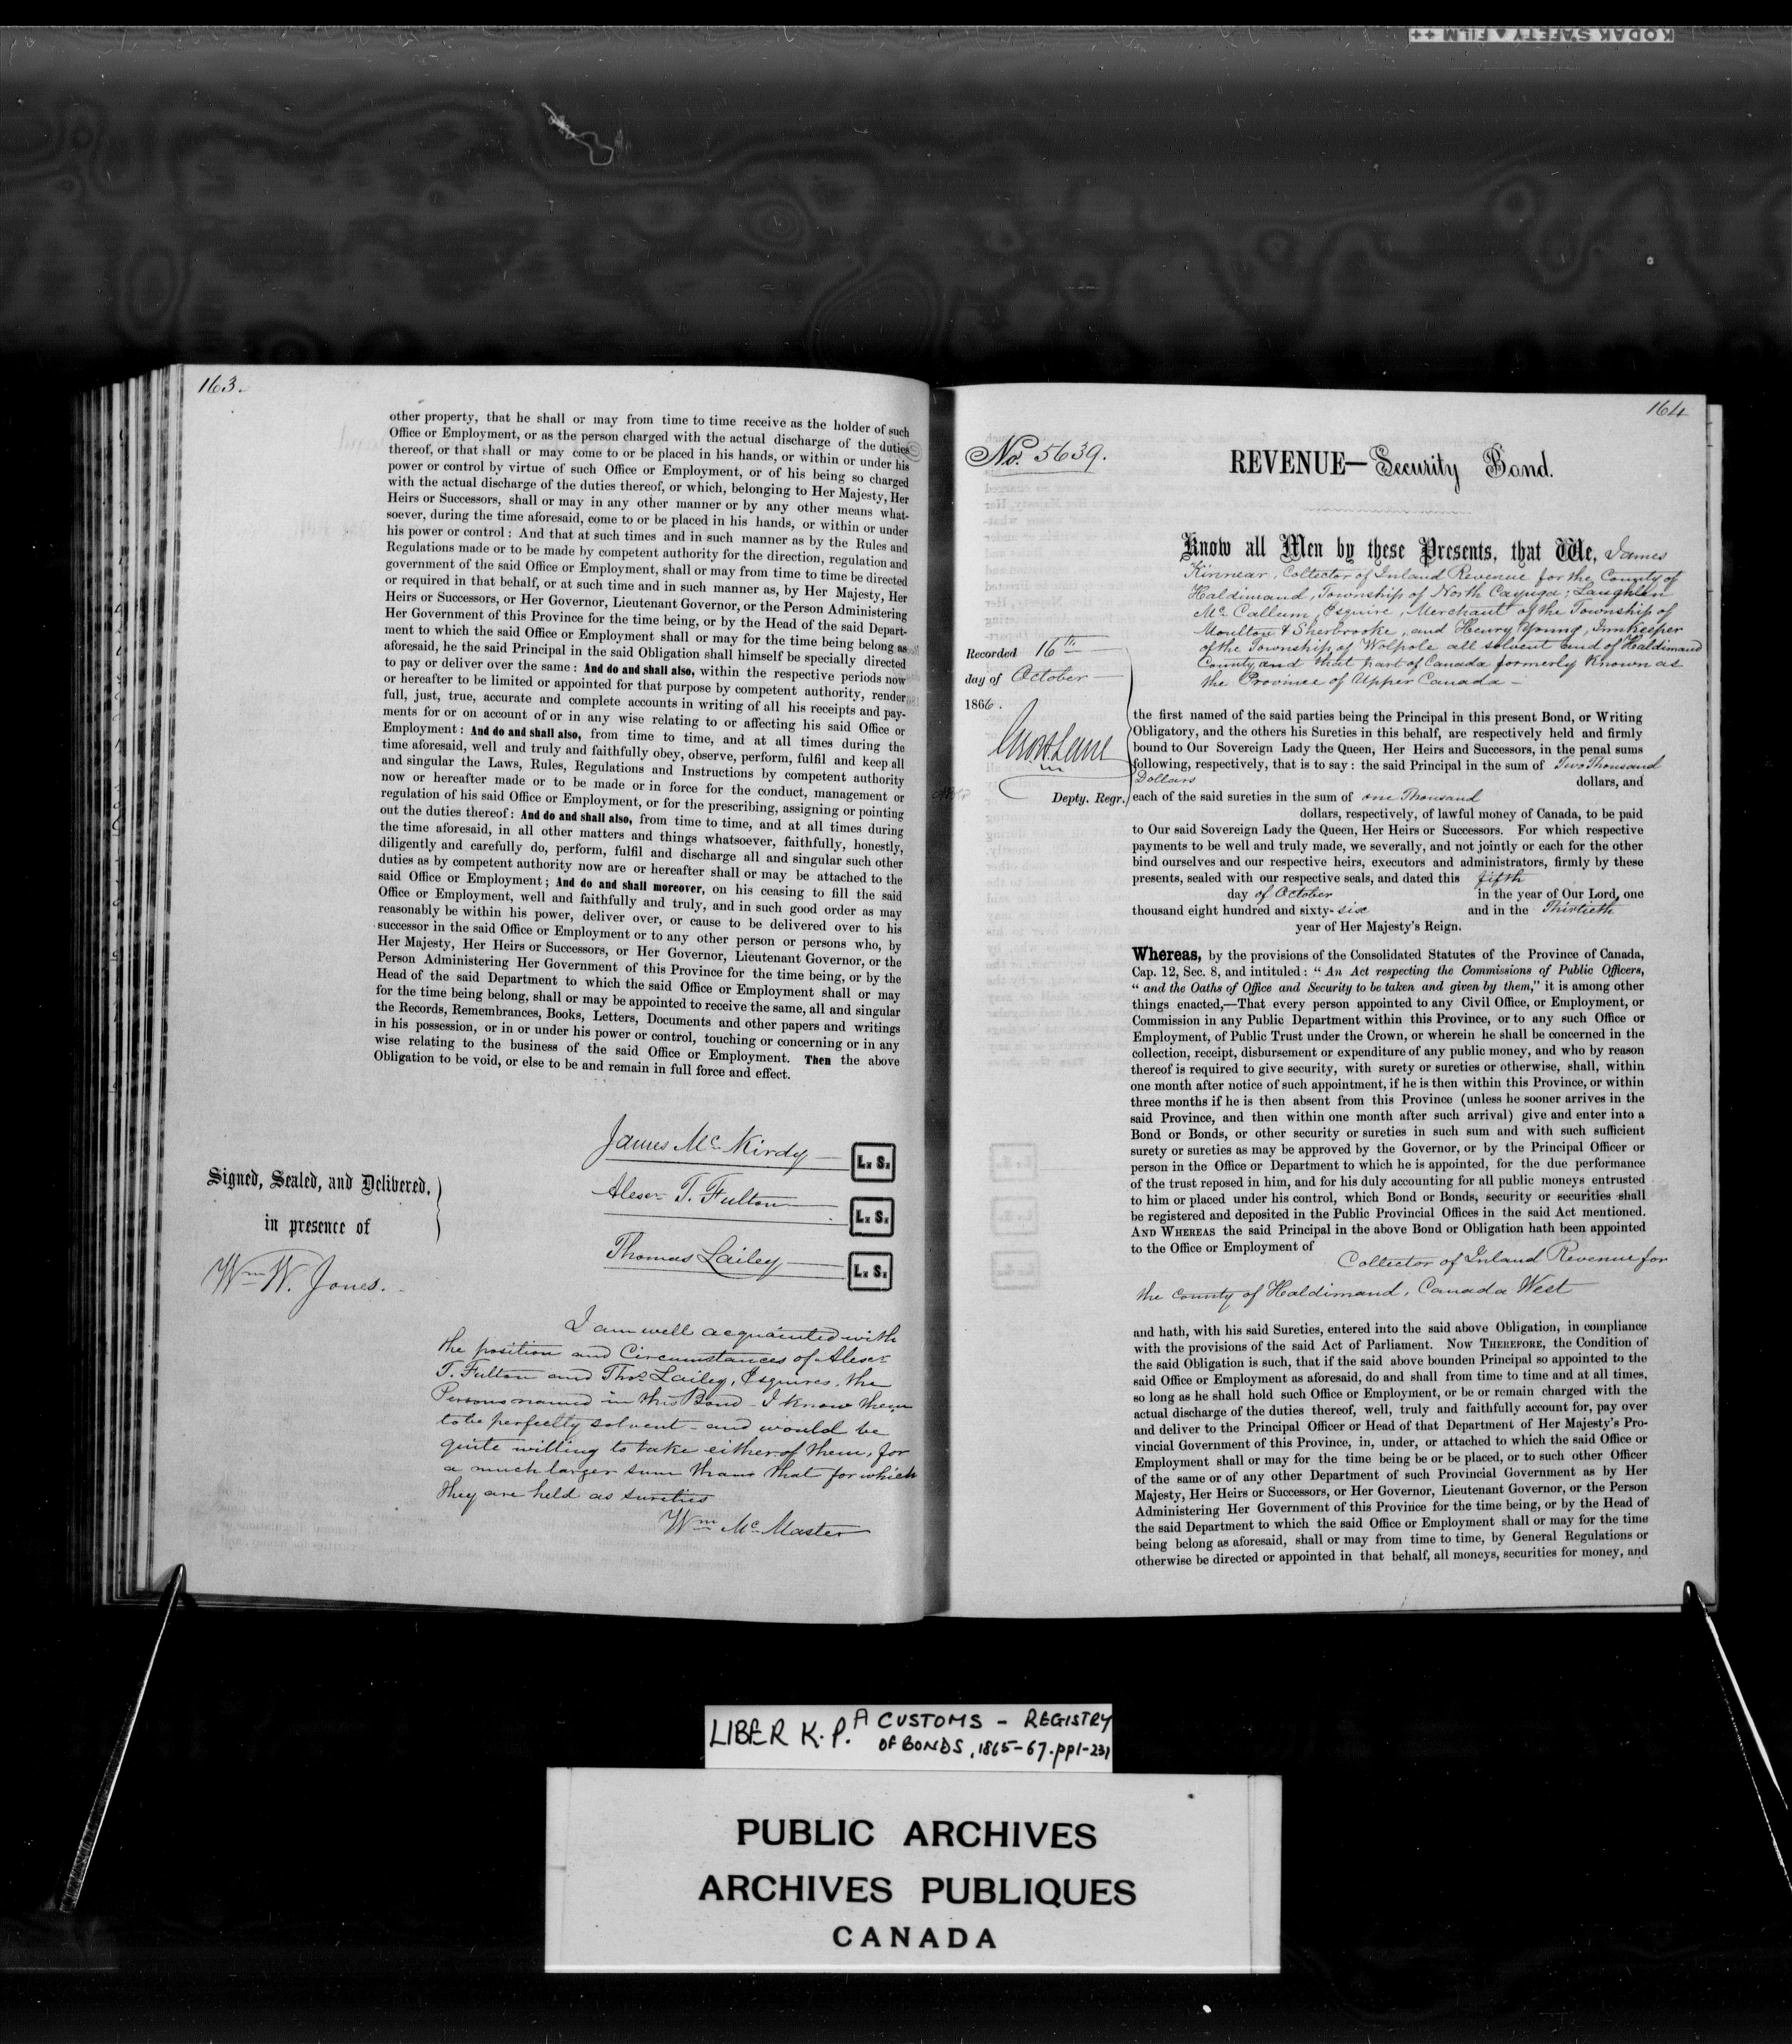 KODAK SAFETY ▲ FILM ++
163.
other property, that he shall or may from time to time receive as the holder of such
Office or Employment, or as the person charged with the actual discharge of the duties
thereof, or that shall or may come to or be placed in his hands, or within or under his
power or control by virtue of such Office or Employment, or of his being so charged
with the actual discharge of the duties thereof, or which, belonging to Her Majesty, Her
Heirs or Successors, shall or may in any other manner or by any other means what-
soever, during the time aforesaid, come to or be placed in his hands, or within or under
his power or control : And that at such times and in such manner as by the Rules and
Regulations made or to be made by competent authority for the direction, regulation and
government of the said Office or Employment, shall or may from time to time be directed
or required in that behalf, or at such time and in such manner as, by Her Majesty, Her
Heirs or Successors, or Her Governor, Lieutenant Governor, or the Person Administering
Her Government of this Province for the time being, or by the Head of the said Depart-
ment to which the said Office or Employment shall or may for the time being belong as
aforesaid, he the said Principal in the said Obligation shall himself be specially directed
to pay or deliver over the same : And do and shall also, within the respective periods now
or hereafter to be limited or appointed for that purpose by competent authority, render
full, just, true, accurate and complete accounts in writing of all his receipts and pay-
ments for or on account of or in any wise relating to or affecting his said Office or
Employment : And do and shall also, from time to time, and at all times during the
time aforesaid, well and truly and faithfully obey, observe, perform, fulfil and keep all
and singular the Laws, Rules, Regulations and Instructions by competent authority
now or hereafter made or to be made or in force for the conduct, management or
regulation of his said Office or Employment, or for the prescribing, assigning or pointing
out the duties thereof : And do and shall also, from time to time, and at all times during
the time aforesaid, in all other matters and things whatsoever, faithfully, honestly,
diligently and carefully do, perform, fulfil and discharge all and singular such other
duties as by competent authority now are or hereafter shall or may be attached to the
said Office or Employment ; And do and shall moreover, on his ceasing to fill the said
Office or Employment, well and faithfully and truly, and in such good order as may
reasonably be within his power, deliver over, or cause to be delivered over to his
successor in the said Office or Employment or to any other person or persons who, by
Her Majesty, Her Heirs or Successors, or Her Governor, Lieutenant Governor, or the
Person Administering Her Government of this Province for the time being, or by the
Head of the said Department to which the said Office or Employment shall or may
for the time being belong, shall or may be appointed to receive the same, all and singular
the Records, Remembrances, Books, Letters, Documents and other papers and writings
in his possession, or in or under his power or control, touching or concerning or in any
wise relating to the business of the said Office or Employment. Then the above
Obligation to be void, or else to be and remain in full force and effect.
James Mc Kirdy L. S.
Signed, Sealed, and Delivered,
Alexr T. Fulton L. S.
in presence of
Thomas Lailey L. S.
Wm W. Jones.
I am well acquainted with
the position and Circumstances of Alexr
T. Fulton and Thos Lailey, Esquires, the
Persons named in this Bond – I know them
to be perfectly solvent – and would be
quite willing to take either of them, for
a much larger sum than that for which
they are held as sureties
Wm Mc Master
164
No. 5639.
REVENUE—Security Bond.
Know all Men by these Presents, that We, James
Kinnear, Collector of Inland Revenue for the County of
Haldimand, Township of North Cayuga; Laughlin
Mc Callum, Esquire, Merchant of the Township of
Moulton & Sherbrooke, and Henry Young, Innkeeper
of the Township of Walpole all solvent and of Haldimand
County and that part of Canada formerly known as
the Province of Upper Canada –
Recorded 16th
day of October
1866.
Depty. Regr.
the first named of the said parties being the Principal in this present Bond, or Writing
Obligatory, and the others his Sureties in this behalf, are respectively held and firmly
bound to Our Sovereign Lady the Queen, Her Heirs and Successors, in the penal sums
following, respectively, that is to say : the said Principal in the sum of Two Thousand
Dollars dollars, and
each of the said sureties in the sum of one Thousand
dollars, respectively, of lawful money of Canada, to be paid
to Our said Sovereign Lady the Queen, Her Heirs or Successors. For which respective
payments to be well and truly made, we severally, and not jointly or each for the other
bind ourselves and our respective heirs, executors and administrators, firmly by these
presents, sealed with our respective seals, and dated this fifth
day of October in the year of Our Lord, one
thousand eight hundred and sixty-six and in the Thirtieth
year of Her Majesty's Reign.
Whereas, by the provisions of the Consolidated Statutes of the Province of Canada,
Cap. 12, Sec. 8, and intituled : " An Act respecting the Commissions of Public Officers,
" and the Oaths of Office and Security to be taken and given by them," it is among other
things enacted,—That every person appointed to any Civil Office, or Employment, or
Commission in any Public Department within this Province, or to any such Office or
Employment, of Public Trust under the Crown, or wherein he shall be concerned in the
collection, receipt, disbursement or expenditure of any public money, and who by reason
thereof is required to give security, with surety or sureties or otherwise, shall, within
one month after notice of such appointment, if he is then within this Province, or within
three months if he is then absent from this Province (unless he sooner arrives in the
said Province, and then within one month after such arrival) give and enter into a
Bond or Bonds, or other security or sureties in such sum and with such sufficient
surety or sureties as may be approved by the Governor, or by the Principal Officer or
person in the Office or Department to which he is appointed, for the due performance
of the trust reposed in him, and for his duly accounting for all public moneys entrusted
to him or placed under his control, which Bond or Bonds, security or securities shall
be registered and deposited in the Public Provincial Offices in the said Act mentioned.
AND WHEREAS the said Principal in the above Bond or Obligation hath been appointed
to the Office or Employment of
Collector of Inland Revenue for
the County of Haldimand, Canada West
and hath, with his said Sureties, entered into the said above Obligation, in compliance
with the provisions of the said Act of Parliament. NOW THEREFORE, the Condition of
the said Obligation is such, that if the said above bounden Principal so appointed to the
said Office or Employment as aforesaid, do and shall from time to time and at all times,
so long as he shall hold such Office or Employment, or be or remain charged with the
actual discharge of the duties thereof, well, truly and faithfully account for, pay over
and deliver to the Principal Officer or Head of that Department of Her Majesty's Pro-
vincial Government of this Province, in, under, or attached to which the said Office or
Employment shall or may for the time being be or be placed, or to such other Officer
of the same or of any other Department of such Provincial Government as by Her
Majesty, Her Heirs or Successors, or Her Governor, Lieutenant Governor, or the Person
Administering Her Government of this Province for the time being, or by the Head of
the said Department to which the said Office or Employment shall or may for the time
being belong as aforesaid, shall or may from time to time, by General Regulations or
otherwise be directed or appointed in that behalf, all moneys, securities for money, and
LIBER K.P. A CUSTOMS – REGISTRY
OF BONDS, 1865–67. pp1–231
PUBLIC ARCHIVES
ARCHIVES PUBLIQUES
CANADA